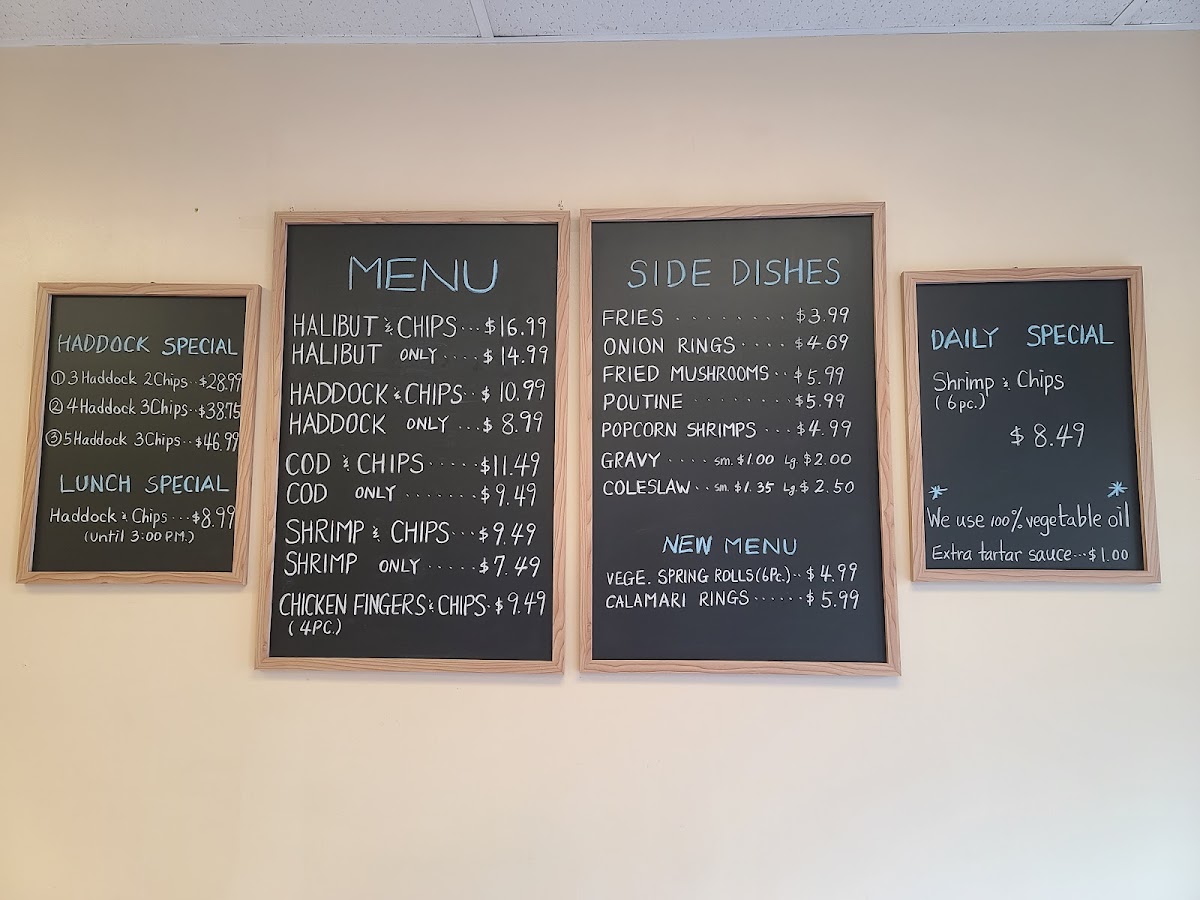 HADDOCK SPECIAL
① 3 Haddock 2 Chips..$28.99
② 4 Haddock 3 Chips..$38.75
③ 5 Haddock 3 Chips..$46.99
LUNCH SPECIAL
Haddock & Chips...$8.99
(Until 3:00 P.M.)
MENU
HALIBUT & CHIPS...$16.99
HALIBUT ONLY....$14.99
HADDOCK & CHIPS..$10.99
HADDOCK ONLY...$8.99
COD & CHIPS.....$11.49
COD ONLY.......$9.49
SHRIMP & CHIPS...$9.49
SHRIMP ONLY.....$7.49
CHICKEN FINGERS & CHIPS.$9.49
(4PC.)
SIDE DISHES
FRIES........$3.99
ONION RINGS....$4.69
FRIED MUSHROOMS..$5.99
POUTINE.......$5.99
POPCORN SHRIMPS...$4.99
GRAVY....sm.$1.00 Lg.$2.00
COLESLAW..sm.$1.35 Lg.$2.50
NEW MENU
VEGE. SPRING ROLLS (6Pc.)..$4.99
CALAMARI RINGS......$5.99
DAILY SPECIAL
Shrimp & Chips
(6pc.)
$8.49
* *
We use 100% vegetable oil
Extra tartar sauce...$1.00